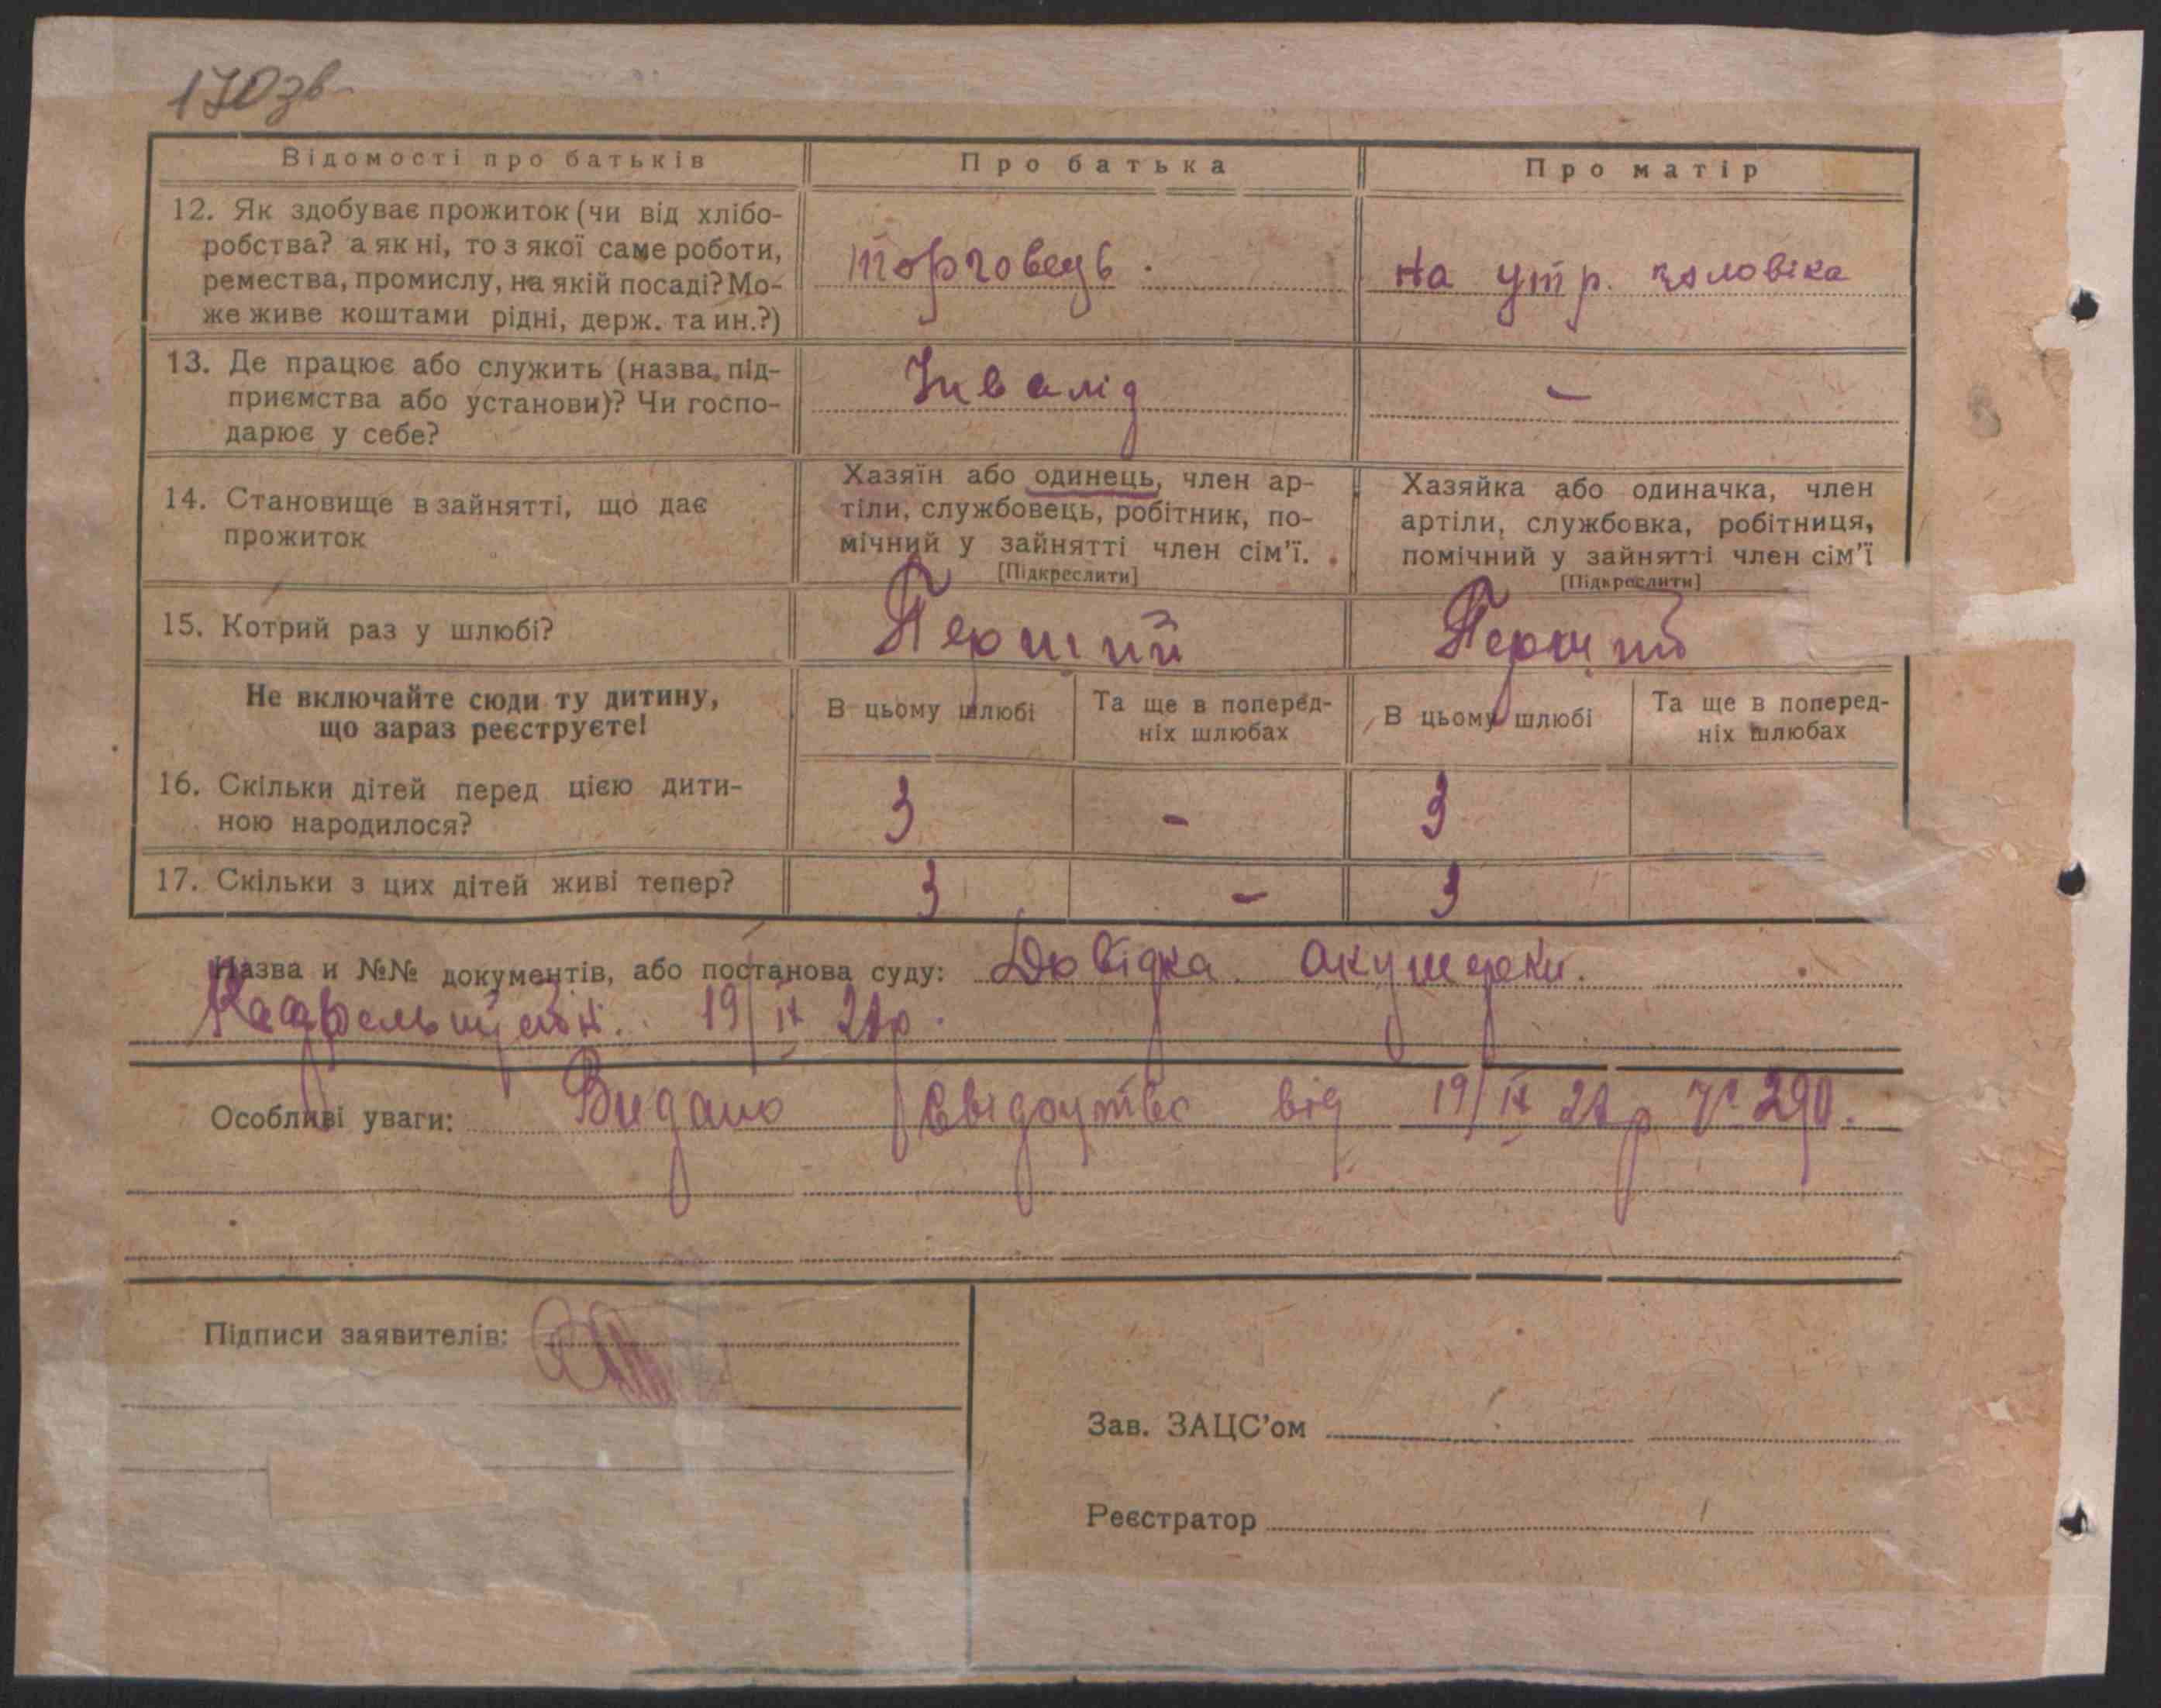 170зв
Відомості про батьків
Про батька
Про матір
12. Як здобуває прожиток (чи від хлібо-
робства? а як ні, то з якої саме роботи,
ремества, промислу, на якій посаді? Мо-
же живе коштами рідні, держ. та ин.?)
торговець.
На утр. чоловіка
13. Де працює або служить (назва під-
приємства або установи)? Чи госпо-
дарює у себе?
Інвалід
-
14. Становище в зайнятті, що дає
прожиток
Хазяїн або одинець, член ар-
тіли, службовець, робітник, по-
мічний у зайнятті член сім'ї.
[Підкреслити]
Хазяйка або одиначка, член
артіли, службовка, робітниця,
помічний у зайнятті член сім'ї
[Підкреслити]
15. Котрий раз у шлюбі?
Перший
Перший
Не включайте сюди ту дитину,
що зараз реєструєте!
В цьому шлюбі
Та ще в поперед-
ніх шлюбах
В цьому шлюбі
Та ще в поперед-
ніх шлюбах
16. Скільки дітей перед цією дити-
ною народилося?
3
-
3
17. Скільки з цих дітей живі тепер?
3
-
3
Назва и №№ документів, або постанова суду: Довідка акушерки.
19/IX
Особливі уваги: Видано свідоцтво від 19/IX р № 290.
Підписи заявителів:
Зав. ЗАЦС'ом
Реєстратор